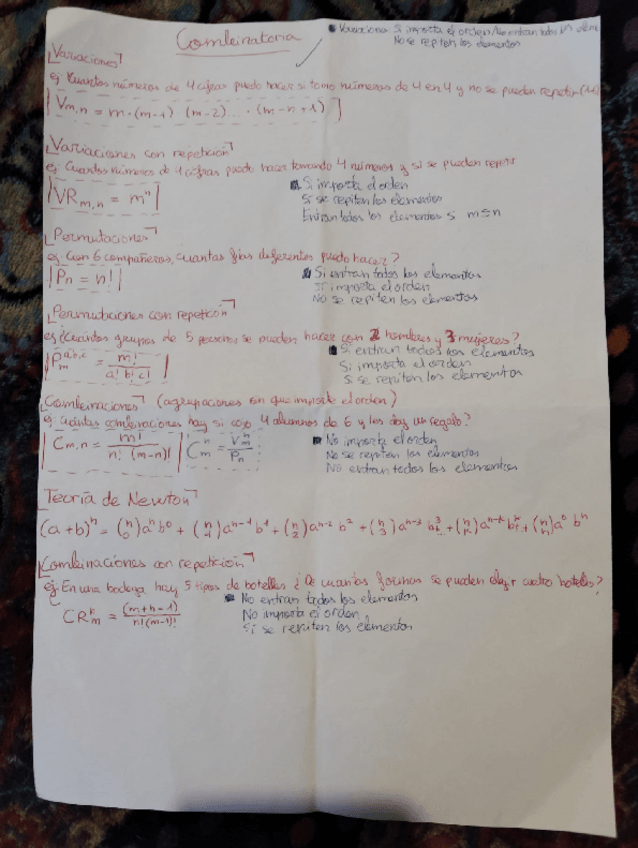 Combinatoria
Variaciones: Si importa el orden/No entran todos
No se repiten los elementos
Variaciones
ej Cuantos números de 4 cifras puedo hacer si tomo números de 4 en 4 y no se pueden repetir
Vm,n = m·(m-1) (m-2)... ·(m-n+1)
Variaciones con repetición
ej: Cuantos números de 4 cifras puedo hacer tomando 4 números y si se pueden repetir
VRm,n = mⁿ
Si importa el orden
Si se repiten los elementos
Entran todos los elementos s m≤n
Permutaciones
ej. Con 6 compañeros, cuantas filas diferentes puedo hacer?
Pn = n!
Si entran todos los elementos
Si importa el orden
No se repiten los elementos
Permutaciones con repetición
ej ¿Cuántos grupos de 5 personas se pueden hacer con 2 hombres y 3 mujeres?
P_m^{a,b,c} = m! / (a! b! c!)
Si entran todos los elementos
Si importa el orden
Si se repiten los elementos
Combinaciones (agrupaciones sin que importe el orden)
ej: Cuántas combinaciones hay si cojo 4 alumnos de 6 y les doy un regalo?
Cm,n = m! / (n! (m-n)!) C_m^n = V_m^n / Pn
No importa el orden
No se repiten los elementos
No entran todos los elementos
Teoría de Newton
(a+b)ⁿ = (n 0)aⁿb⁰ + (n 1)aⁿ⁻¹b¹ + (n 2)aⁿ⁻²b² + (n 3)aⁿ⁻³b³... + (n k)aⁿ⁻ᵏbᵏ... + (n n)a⁰bⁿ
Combinaciones con repetición
ej: En una bodega hay 5 tipos de botellas ¿De cuantas formas se pueden elegir cuatro botellas?
CR_m^n = (m+n-1)! / (n!(m-1)!)
No entran todos los elementos
No importa el orden
Si se repiten los elementos